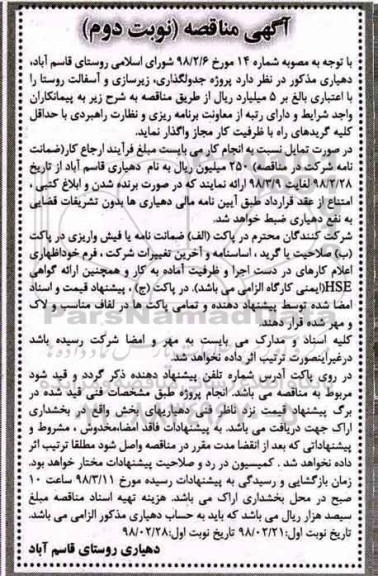 آگهی مناقصه (نوبت دوم)
با توجه به مصوبه شماره ۱۴ مورخ ۹۸/۲/۶ شورای اسلامی روستای قاسم آباد،
دهیاری مذکور در نظر دارد پروژه جدولگذاری، زیرسازی و آسفالت روستا را
با اعتباری بالغ بر ۵ میلیارد ریال از طریق مناقصه به شرح زیر به پیمانکاران
واجد شرایط و دارای رتبه از معاونت برنامه ریزی و نظارت راهبردی با حداقل
کلیه گریدهای راه با ظرفیت کار مجاز واگذار نماید.
در صورت تمایل نسبت به انجام کار می بایست مبلغ فرآیند ارجاع کار(ضمانت
نامه شرکت در مناقصه) ۲۵۰ میلیون ریال به نام دهیاری قاسم آباد از تاریخ
۹۸/۲/۲۸ لغایت ۹۸/۳/۹ ارائه نمایند که در صورت برنده شدن و ابلاغ کتبی ،
امتناع از عقد قرارداد طبق آیین نامه مالی دهیاری ها بدون تشریفات قضایی
به نفع دهیاری ضبط خواهد شد.
شرکت کنندگان محترم در پاکت (الف) ضمانت نامه یا فیش واریزی در پاکت
(ب) صلاحیت یا گرید ، اساسنامه و آخرین تغییرات شرکت ، فرم خوداظهاری
اعلام کارهای در دست اجرا و ظرفیت آماده به کار و همچنین ارائه گواهی
HSE(ایمنی کارگاه الزامی می باشد). در پاکت (ج) ، پیشنهاد قیمت و اسناد
امضا شده توسط پیشنهاد دهنده و تمامی پاکت ها در لفاف مناسب و لاک
و مهر شده قرار دهند.
کلیه اسناد و مدارک می بایست به مهر و امضا شرکت رسیده باشد
درغیراینصورت ترتیب اثر داده نخواهد شد.
در روی پاکت آدرس شماره تلفن پیشنهاد دهنده ذکر گردد و قید شود
مربوط به مناقصه می باشد. انجام پروژه طبق مشخصات فنی قید شده در
برگ پیشنهاد قیمت نزد ناظر فنی دهیاریهای بخش واقع در بخشداری
اراک جهت دریافت می باشد. به پیشنهادات فاقد امضا،مخدوش ، مشروط و
پیشنهاداتی که بعد از انقضا مدت مقرر در مناقصه واصل شود مطلقا ترتیب اثر
داده نخواهد شد . کمیسیون در رد و صلاحیت پیشنهادات مختار خواهد بود.
زمان بازگشایی و رسیدگی به پیشنهادات رسیده مورخ ۹۸/۳/۱۱ ساعت ۱۰
صبح در محل بخشداری اراک می باشد. هزینه تهیه اسناد مناقصه مبلغ
سیصد هزار ریال می باشد که باید به حساب دهیاری مذکور الزامی می باشد.
تاریخ نوبت اول:۹۸/۰۲/۲۱ تاریخ نوبت اول:۹۸/۰۲/۲۸
دهیاری روستای قاسم آباد
ParsNamadData